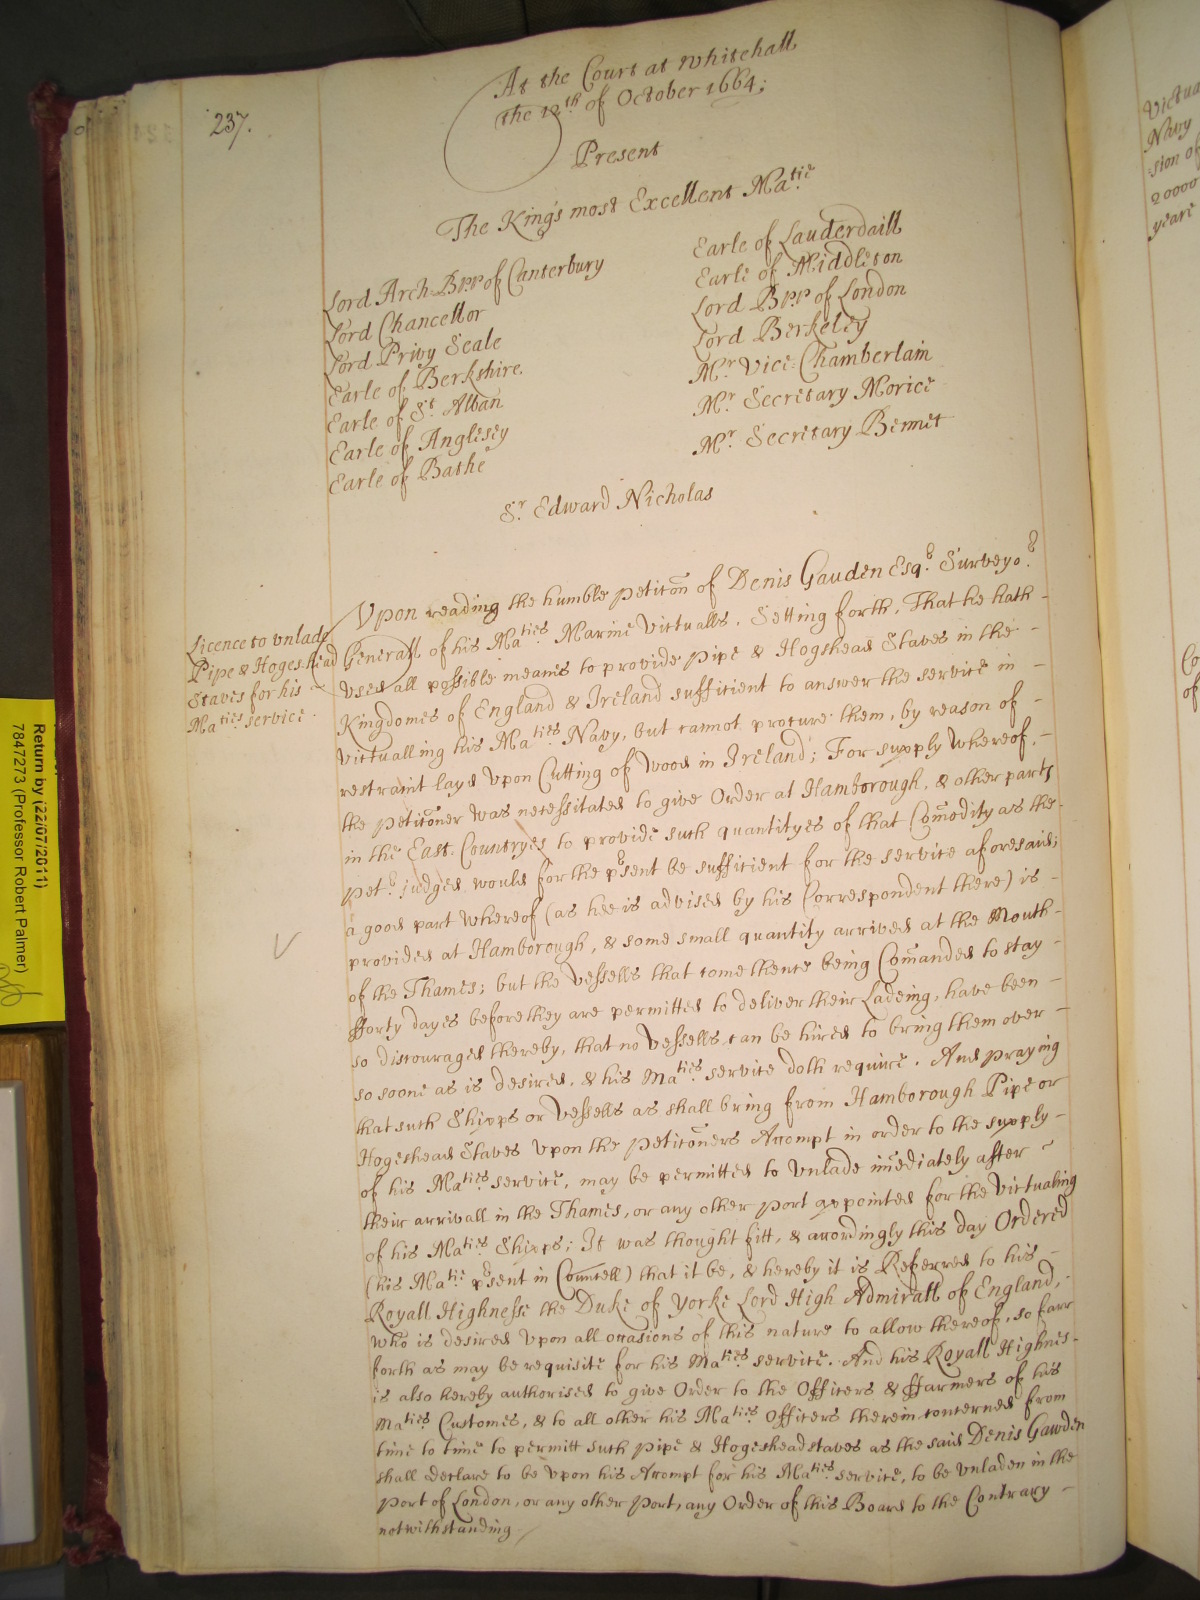 237.
At the Court at Whitehall
the 12th of October 1664;
Present
The Kings most Excellent Matie
Lord Arch-Bpp of Canterbury
Lord Chancellor
Lord Privy Seale
Earle of Berkshire.
Earle of St. Alban
Earle of Anglesey
Earle of Bathe
Earle of Lauderdaill
Earle of Middleton
Lord Bpp of London
Lord Berkeley
Mr. Vice-Chamberlain
Mr. Secretary Morice
Mr. Secretary Bennet
Sr. Edward Nicholas
Licence to vnlade
Pipe & Hogeshead
Staves for his
Maties service.
Vpon reading the humble Petitōn of Denis Gauden Esqr. Surveyor.
Generall of his Maties. Marine Victualls. Setting forth, That he hath
vsed all possible meanes to provide Pipe & Hogshead Staves in the
Kingdomes of England & Ireland sufficient to answer the service in
Victualling his Maties Navy, but cannot procure them, by reason of
restraint layd vpon Cutting of Wood in Ireland; For supply whereof,
the Petitōner was necessitated to give Order at Hamborough, & other parts
in the East-Countryes to provide such quantityes of that Com̄odity as the
Petr. judged would for the prsent be sufficient for the service aforesaid;
a good part whereof (as hee is advised by his Correspondent there) is
provided at Hamborough, & some small quantity arrived at the Mouth
of the Thames; but the Vessells that come thence being Com̄anded to stay
fforty dayes before they are permitted to deliver their Ladeing, have been
so discouraged thereby, that no Vessells can be hired to bring them over
so soone as is desired, & his Maties. service doth require. And praying
that such Shipps or Vessells as shall bring from Hamborough Pipe or
Hogeshead Staves vpon the Petitōners Accompt in order to the supply
of his Maties. service, may be permitted to vnlade im̄ediately after
their arrivall in the Thames, or any other Port appointed for the Victualing
of his Maties. Shipps; It was thought fitt, & accordingly this day Ordered
(his Matie. prsent in Councell) that it be, & hereby it is Referred to his
Royall Highnesse the Duke of Yorke Lord High Admirall of England,
who is desired vpon all occasions of this nature to allow thereof, so farr
forth as may be requisite for his Maties service. And his Royall Highnes
is also hereby authorised to give Order to the Officers & ffarmers of his
Maties. Customes, & to all other his Maties. Officers therein concerned from
time to time to permitt such Pipe & Hogeshead staves as the said Denis Gawden
shall declare to be vpon his Accompt for his Maties. service, to be vnladen in the
Port of London, or any other Port, any Order of this Board to the Contrary
notwithstanding.
Return by (22/07/2011)
7847273 (Professor Robert Palmer)
Victua
Navy
sion of
20000
yeare
Co
of